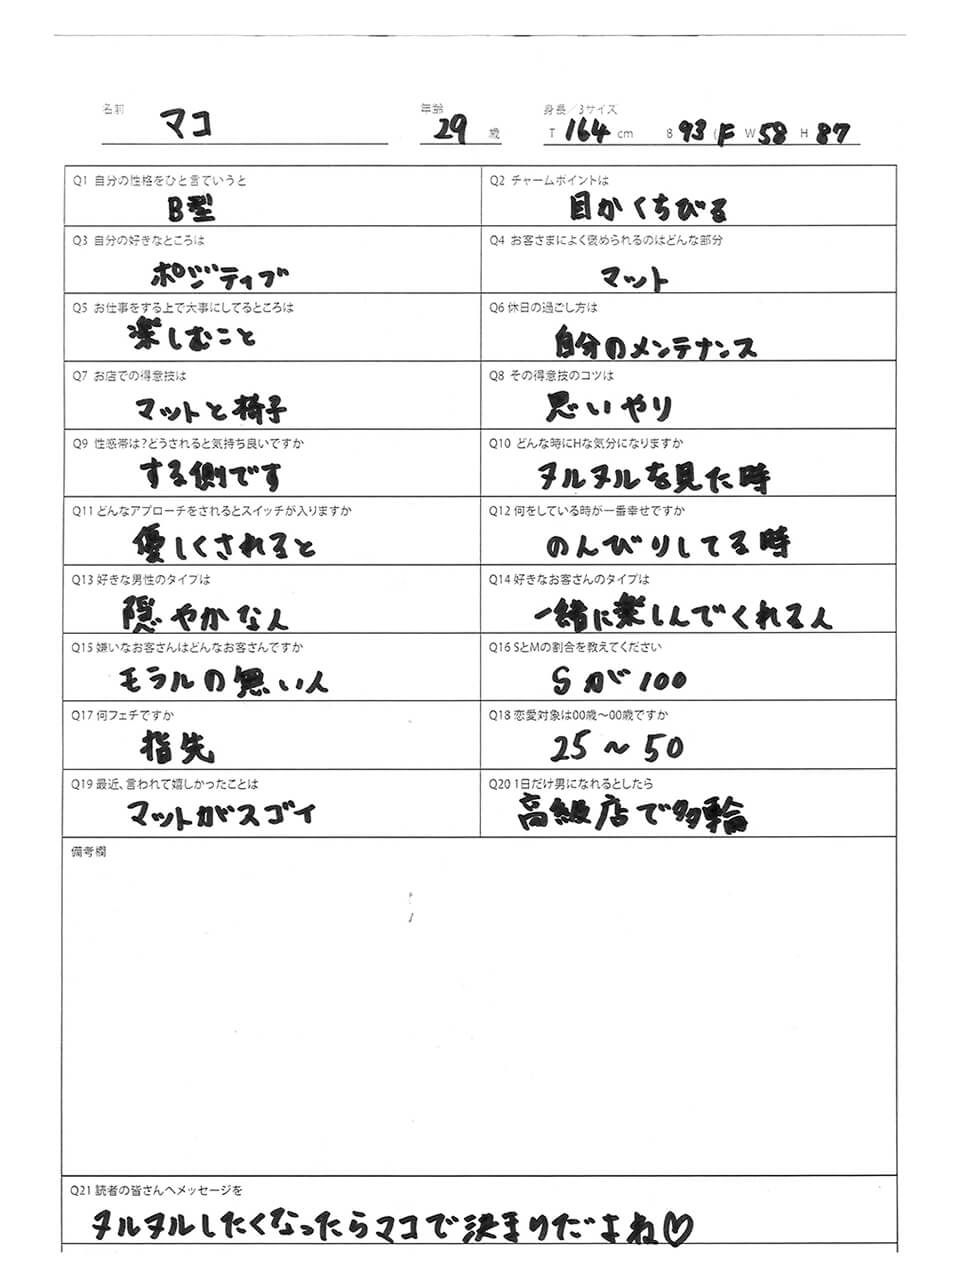 名前 マコ 年齢 29 歳 身長／3サイズ T 164 cm B 93 (F W 58 H 87
Q1 自分の性格をひと言ていうと
B型
Q2 チャームポイントは
目かくちびる
Q3 自分の好きなところは
ポジティブ
Q4 お客さまによく褒められるのはどんな部分
マット
Q5 お仕事をする上で大事にしてるところは
楽しむこと
Q6 休日の過ごし方は
自分のメンテナンス
Q7 お店での得意技は
マットと椅子
Q8 その得意技のコツは
思いやり
Q9 性感帯は?どうされると気持ち良いですか
する側です
Q10 どんな時にHな気分になりますか
ヌルヌルを見た時
Q11 どんなアプローチをされるとスイッチが入りますか
優しくされると
Q12 何をしている時が一番幸せですか
のんびりしてる時
Q13 好きな男性のタイプは
隠やかな人
Q14 好きなお客さんのタイプは
一緒に楽しんでくれる人
Q15 嫌いなお客さんはどんなお客さんですか
モラルの無い人
Q16 SとMの割合を教えてください
Sが100
Q17 何フェチですか
指先
Q18 恋愛対象は00歳〜00歳ですか
25〜50
Q19 最近、言われて嬉しかったことは
マットがスゴイ
Q20 1日だけ男になれるとしたら
高級店で多輪
備考欄
Q21 読者の皆さんへメッセージを
ヌルヌルしたくなったらマコで決まりだよね♡